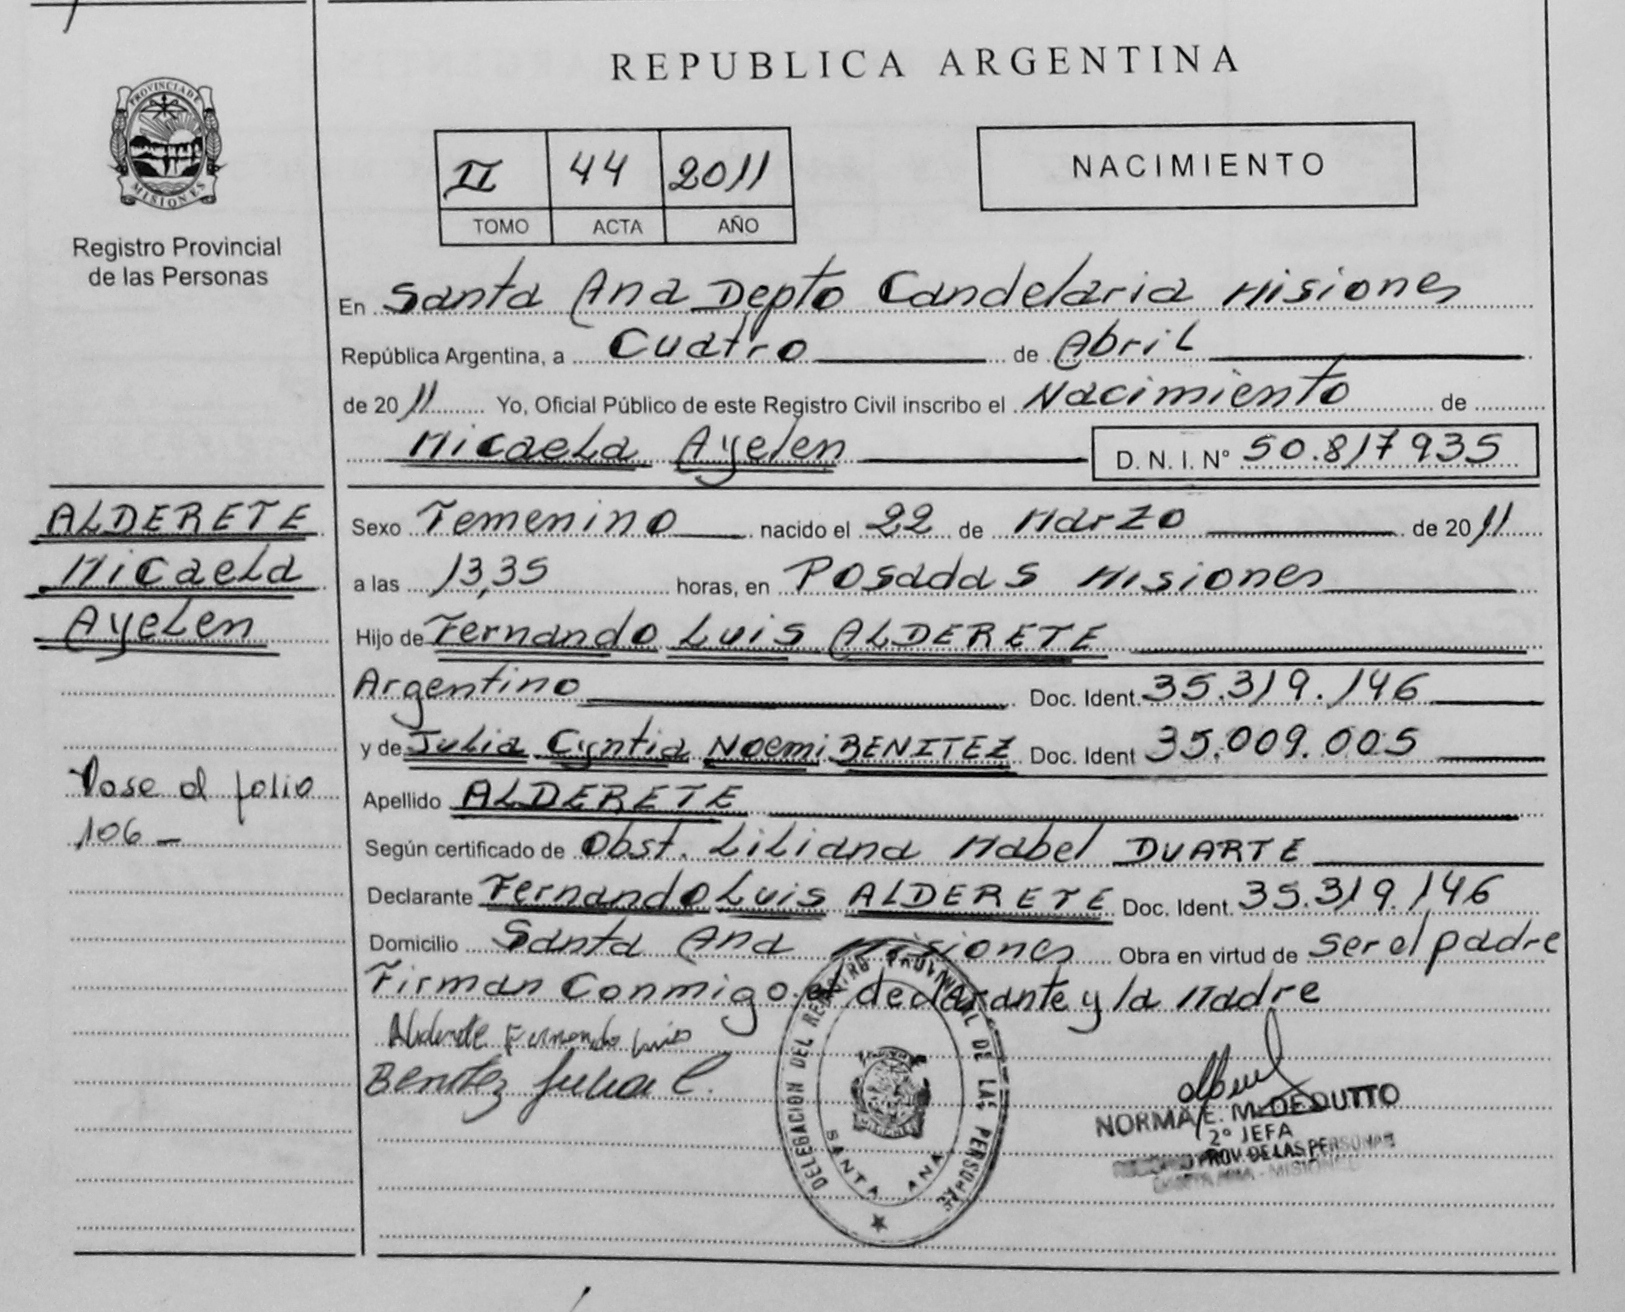 REPUBLICA ARGENTINA
PROVINCIA DE
MISIONES
Registro Provincial
de las Personas
II 44 2011
TOMO ACTA AÑO
NACIMIENTO
En Santa Ana Depto Candelaria Misiones
República Argentina, a Cuatro de Abril
de 2011 Yo, Oficial Público de este Registro Civil inscribo el Nacimiento de
Micaela Ayelen D. N. I. N° 50.817935
ALDERETE
Micaela
Ayelen
Sexo Femenino nacido el 22 de Marzo de 2011
a las 13,35 horas, en Posadas Misiones
Hijo de Fernando Luis ALDERETE
Argentino Doc. Ident. 35.319.146
y de Julia Cyntia Noemi BENITEZ Doc. Ident 35.009.005
Pase al folio
106 -
Apellido ALDERETE
Según certificado de Obst. Liliana Mabel DUARTE
Declarante Fernando Luis ALDERETE Doc. Ident. 35.319.146
Domicilio Santa Ana Misiones Obra en virtud de ser el padre
Firman Conmigo el declarante y la Madre
Alderete Fernando Luis
Benitez Julia C.
DELEGACION DEL REGISTRO PROVINCIAL DE LAS PERSONAS
SANTA ANA
NORMA E. M. DEDUTTO
2° JEFA
PROV. DE LAS PERSONAS
SANTA ANA - MISIONES